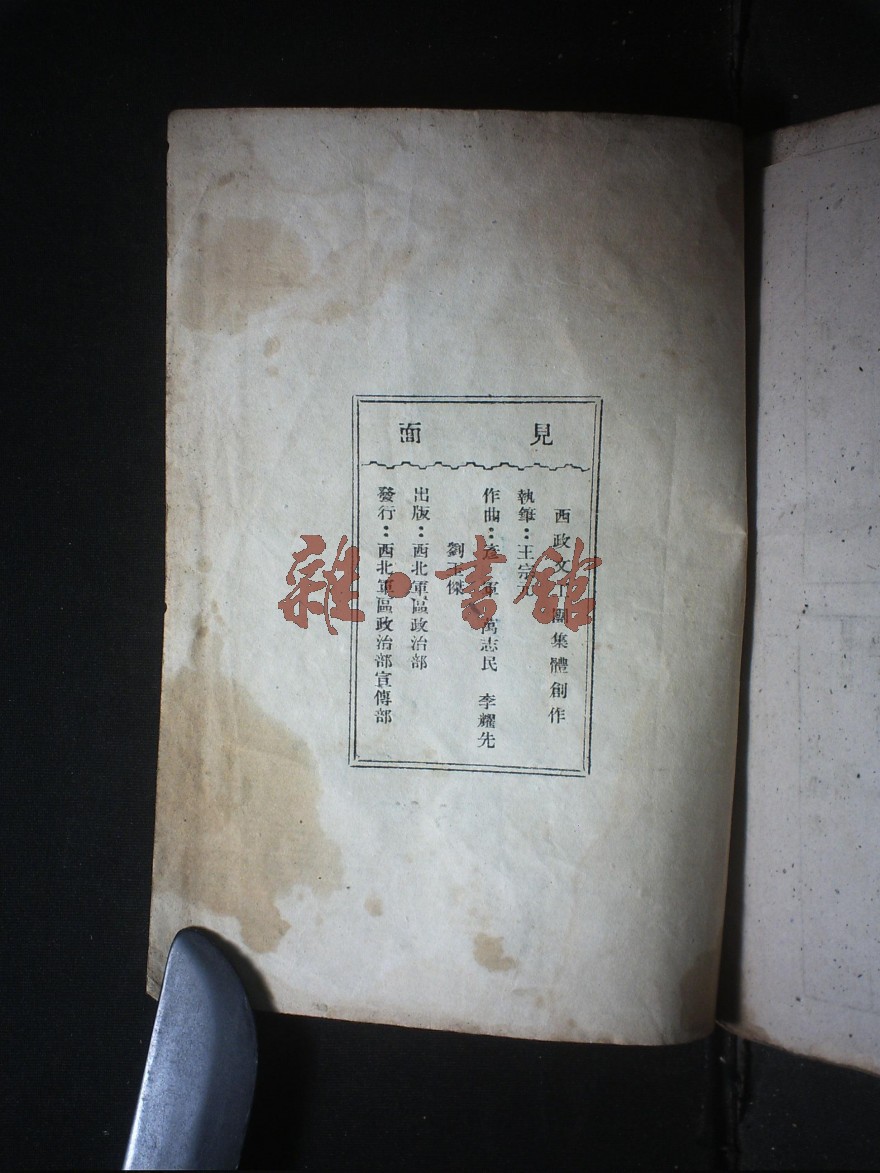 見面
西政文工團集體創作
執筆：王宗元
作曲：彦軍 萬志民 李耀先
劉玉傑
出版：西北軍區政治部
發行：西北軍區政治部宣傳部
雜·書館